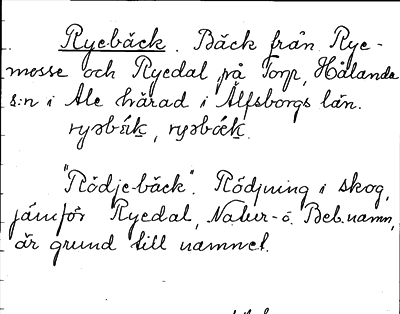 Ryebäck. Bäck från Rye-
mosse och Ryedal på Torp, Hålanda
s:n i Ale härad i Älfsborgs län.
"Rödjebäck". Rödjning i skog,
jämför Ryedal, Natur- o. Beb.namn,
är grund till namnet.